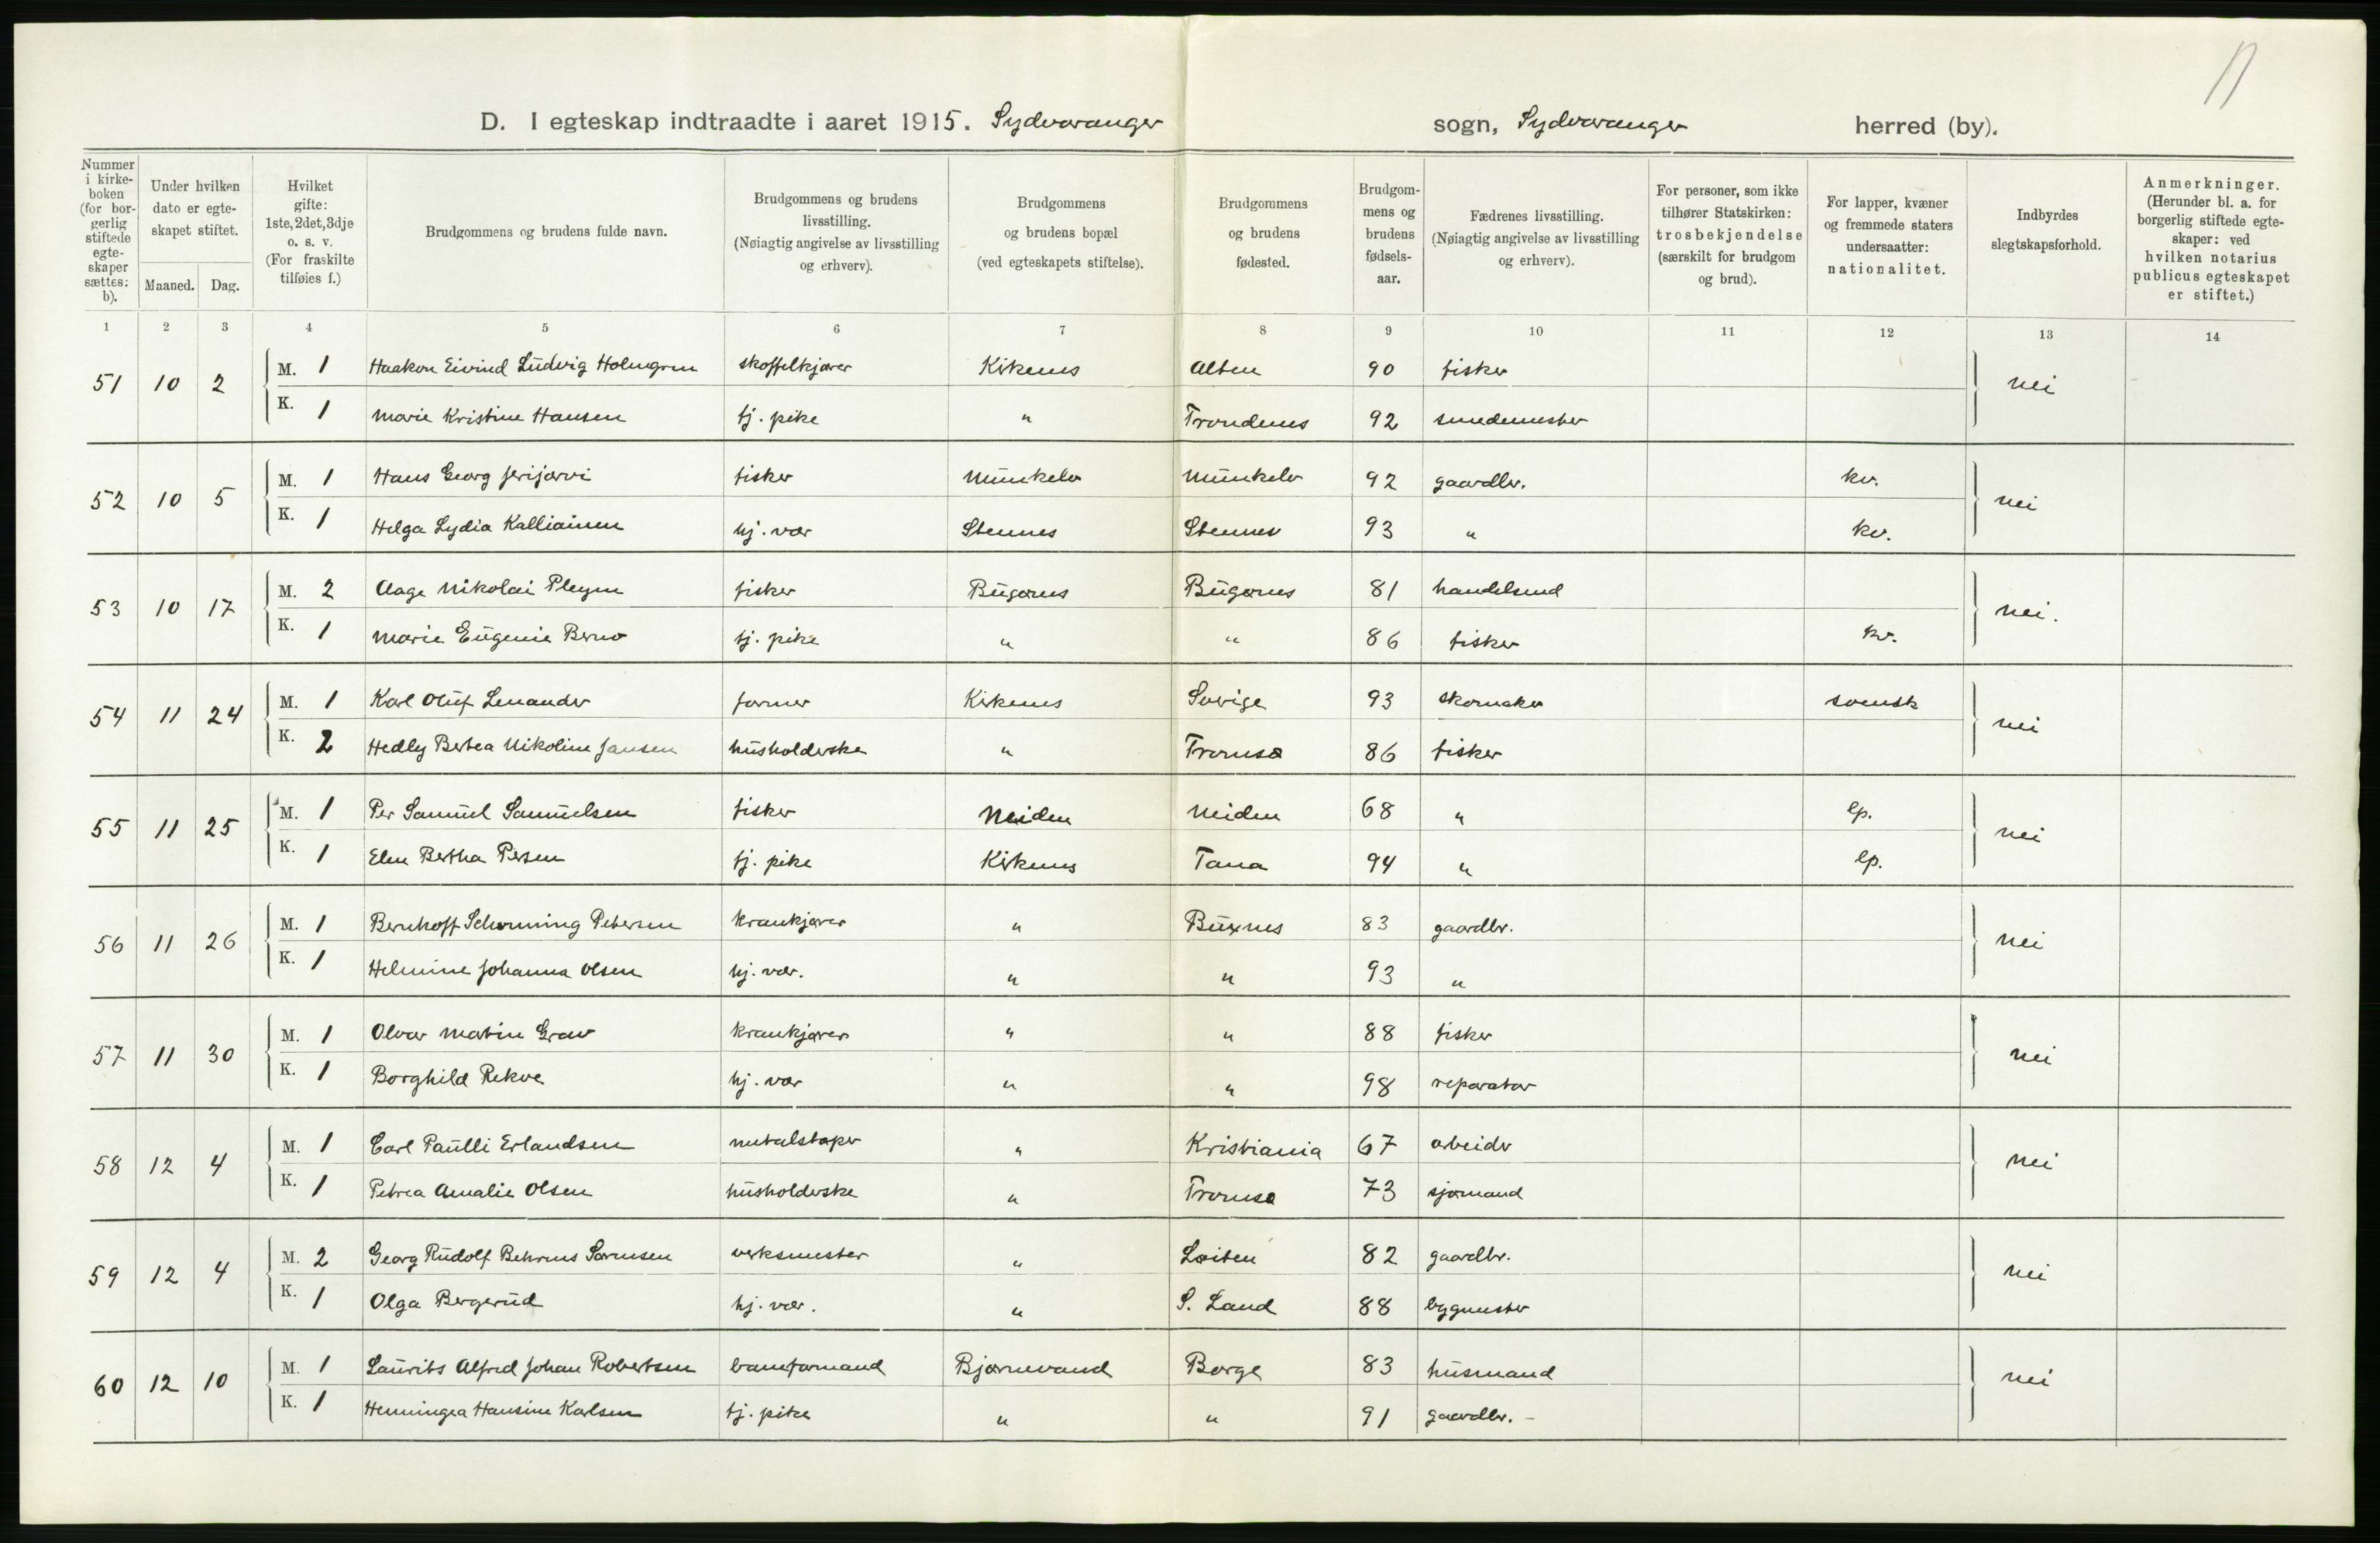 D. I egteskap indtraadte i aaret 1915. Sydvaranger sogn, Sydvaranger herred (by).
Nummer i kirkeboken (for borgerlig stiftede egteskaper sættes: b).
Under hvilken dato er egteskapet stiftet.
Maaned. Dag.
Hvilket gifte: 1ste, 2det, 3dje o. s. v. (For fraskilte tilføies f.)
Brudgommens og brudens fulde navn.
Brudgommens og brudens livsstilling. (Nøiagtig angivelse av livsstilling og erhverv).
Brudgommens og brudens bopæl (ved egteskapets stiftelse).
Brudgommens og brudens fødested.
Brudgommens og brudens fødselsaar.
Fædrenes livsstilling. (Nøiagtig angivelse av livsstilling og erhverv).
For personer, som ikke tilhører Statskirken: trosbekjendelse (særskilt for brudgom og brud).
For lapper, kvæner og fremmede staters undersaatter: nationalitet.
Indbyrdes slegtskapsforhold.
Anmerkninger. (Herunder bl. a. for borgerlig stiftede egteskaper: ved hvilken notarius publicus egteskapet er stiftet.)
1 2 3 4 5 6 7 8 9 10 11 12 13 14
51 10 2 M. 1 Haakon Eivind Ludvig Holmgren skoffelkjører Kirkenes Alten 90 fisker nei
K. 1 Marie Kristine Hansen tj. pike " Trondenes 92 smedemester
52 10 5 M. 1 Hans Georg Jerijærvi fisker Munkelv Munkelv 92 gaardbr. kv. nei
K. 1 Helga Lydia Kalliainen hj. vær Stennes Stennes 93 " kv.
53 10 17 M. 2 Aage Nikolai Pleym fisker Bugønes Bugønes 81 handelsmd nei.
K. 1 Marie Eugenie tj. pike " " 86 fisker kv.
54 11 24 M. 1 Karl Oluf Lenander former Kirkenes Sverige 93 skomaker svensk nei
K. 2 Hedly Bertea Nikoline Jansen husholderske " Tromsø 86 fisker
55 11 25 M. 1 Per Samuel Samuelsen fisker Neiden Neiden 68 " lp. nei
K. 1 Elen Bertha Persen tj. pike Kirkenes Tana 94 " lp.
56 11 26 M. 1 Bernhoff Schønning Petersen krankjører " Buxnes 83 gaardbr. nei
K. 1 Helmine Johanna Olsen hj. vær. " " 93 "
57 11 30 M. 1 Olvar Martin Grav krankjører " " 88 fisker nei
K. 1 Borghild Rekve hj. vær " " 98 reparatør
58 12 4 M. 1 Carl Paulli Erlandsen metalstøper " Kristiania 67 arbeider nei
K. 1 Petrea Amalie Olsen husholderske " Tromsø 73 sjømand
59 12 4 M. 2 Georg Rudolf Behrens Sørensen verksmester " Løiten 82 gaardbr. nei
K. 1 Olga Bergerud hj. vær. " S. Land 88 bygmester
60 12 10 M. 1 Laurits Alfred Johan Robertsen baneformand Bjørnevand Borge 83 husmand nei
K. 1 Henningea Hansine Karlsen tj. pike " " 91 gaardbr. -